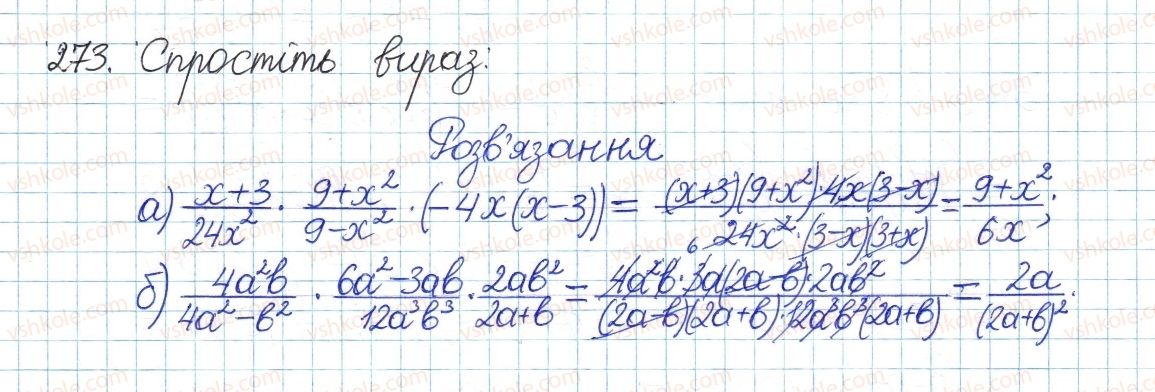 273. Спростіть вираз:
Розв'язання
а) (x+3)/(24x²) · (9+x²)/(9−x²) · (−4x(x−3)) = ((x+3)(9+x²)·4x(3−x))/(6 24x²·(3−x)(3+x)) = (9+x²)/(6x);
б) (4a²b)/(4a²−b²) · (6a²−3ab)/(12a³b³) · (2ab²)/(2a+b) = (4a²b·3a(2a−b)·2ab²)/((2a−b)(2a+b)·12a³b³(2a+b)) = (2a)/((2a+b)²).